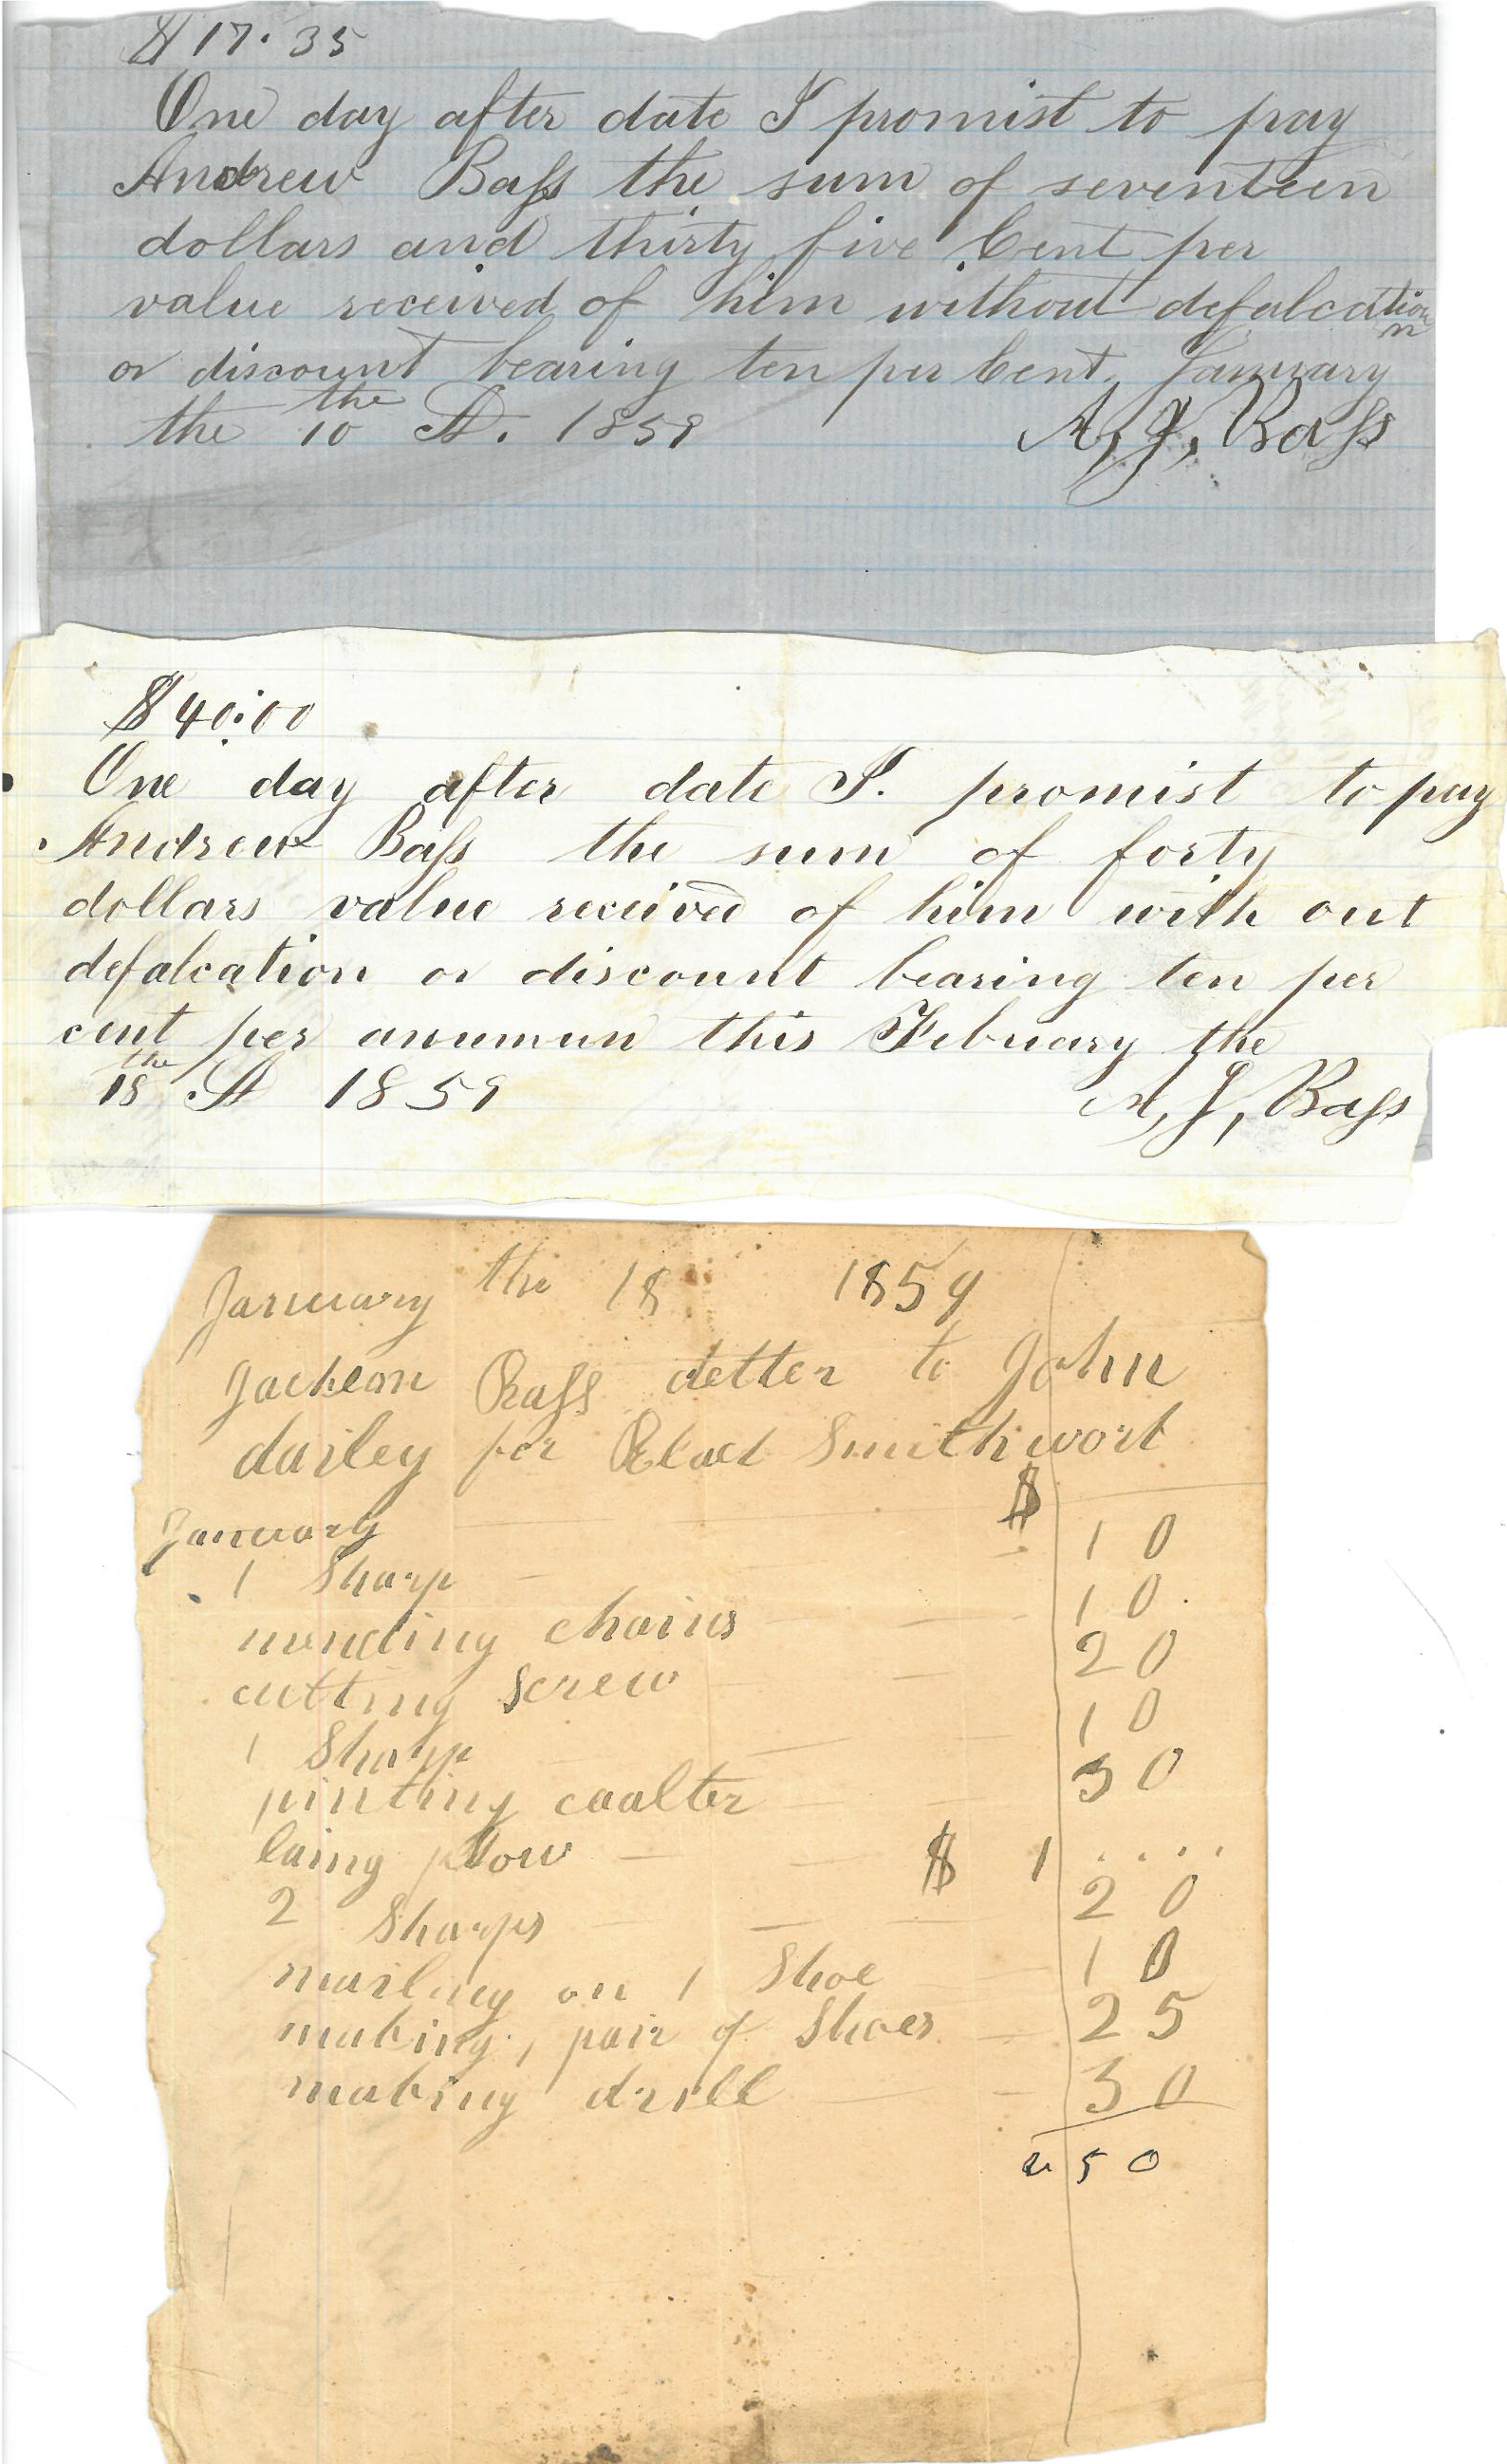 $17.35
One day after date I promist to pay
Andrew Bass the sum of seventeen
dollars and thirty five Cent per
value received of him without defalcation
or discount bearing ten per Cent, January
the 10 the A. 1859 A, J, Bass
$40.00
One day after date I. promist to pay
Andrew Bass the sum of forty
dollars value received of him with out
defalcation or discount bearing ten per
cent per anumun this February the
18 the A 1859 A, J, Bass
January the 18 1859
Jackson Bass detter to John
darley for Black Smith work
January $
1 Sharp 10
mending chains 10.
cutting Screw 20
1 Sharp 10
pinting coalter 30
laing plow $ 1 ....
2 Sharps 20
nailing on 1 Shoe 10
making 1 pair of Shoes 25
making drill 30
2 50